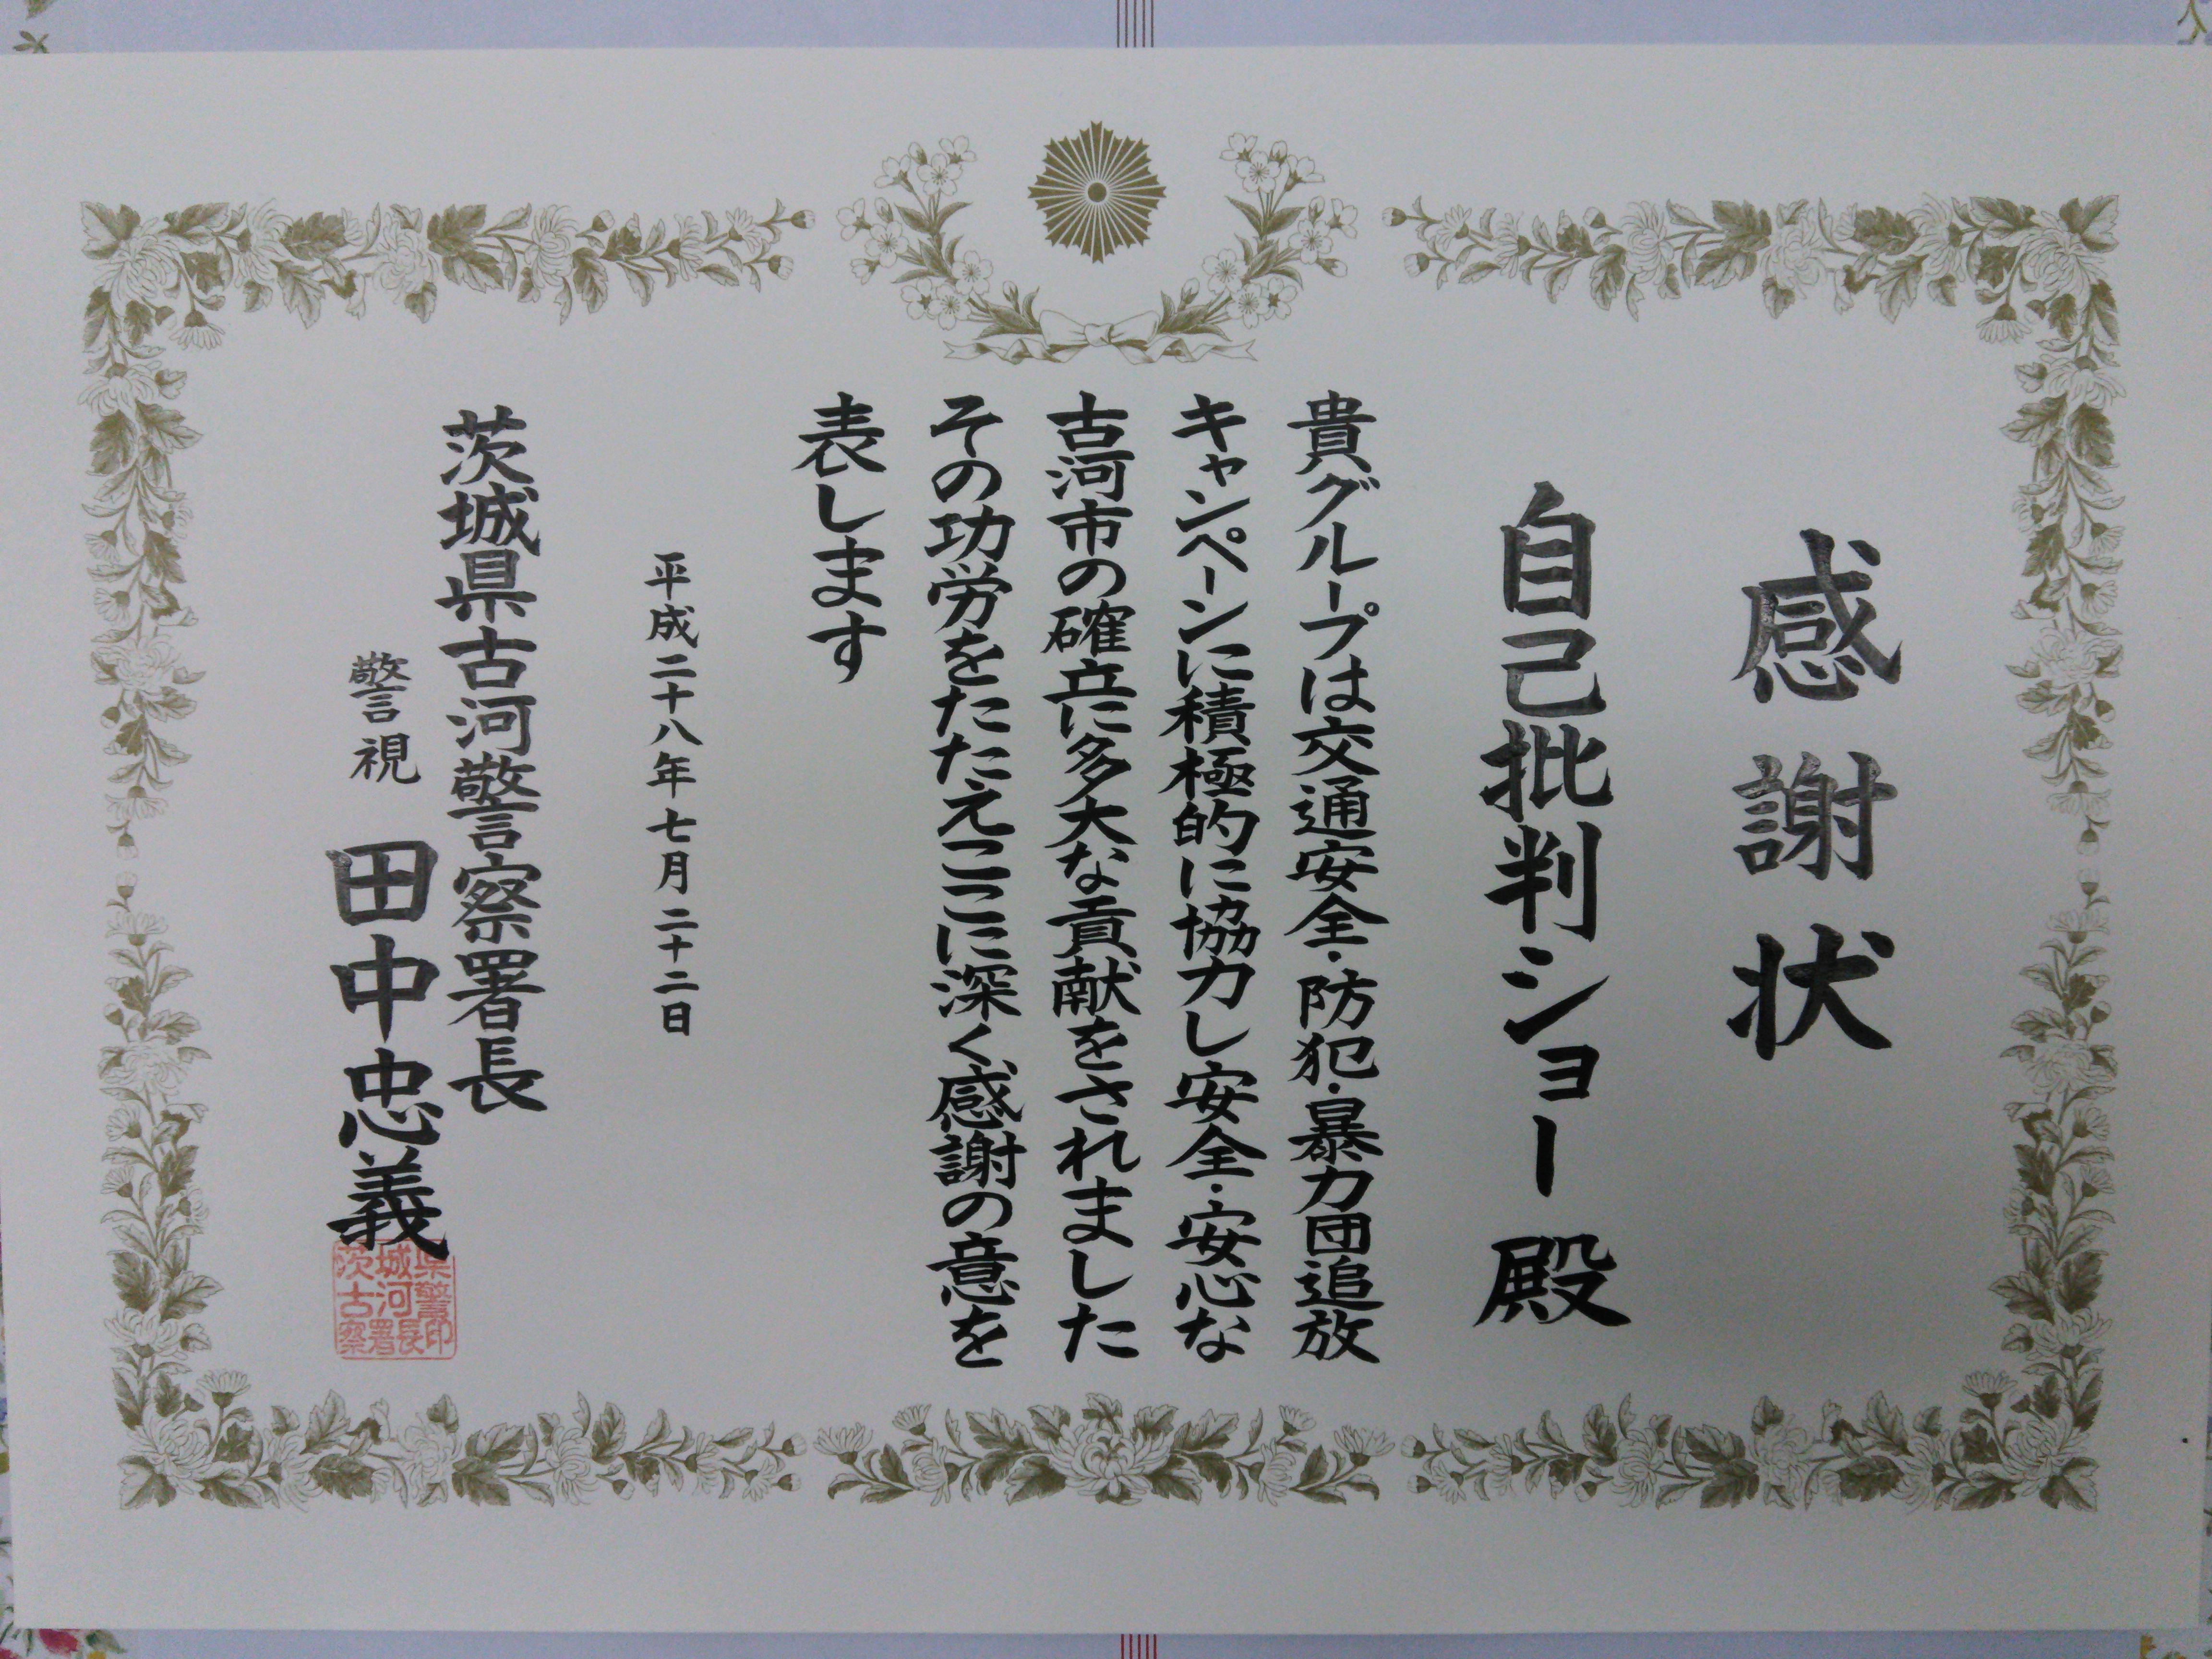 感謝状
自己批判ショー 殿
貴グループは交通安全・防犯・暴力団追放
キャンペーンに積極的に協力し安全・安心な
古河市の確立に多大な貢献をされました
その功労をたたえここに深く感謝の意を
表します
平成二十八年七月二十二日
茨城県古河警察署長
警視 田中忠義
茨城県
古河警
察署長印